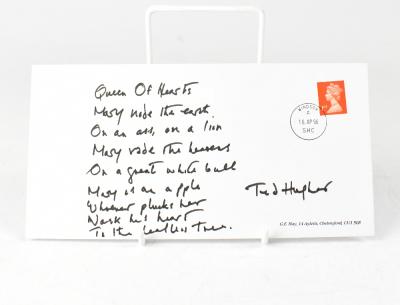 Queen Of Hearts
Mary rode the earth.
On an ass, on a lion
Mary rode the heavens
On a great white bull
Mary is an apple
Whoever plucks her
Nails his heart
To the leafless Tree.
Ted Hughes
WINDSOR
18 AP 96
SHC
1st
G.E. Hay, 14 Aylets, Chelmsford, CU3